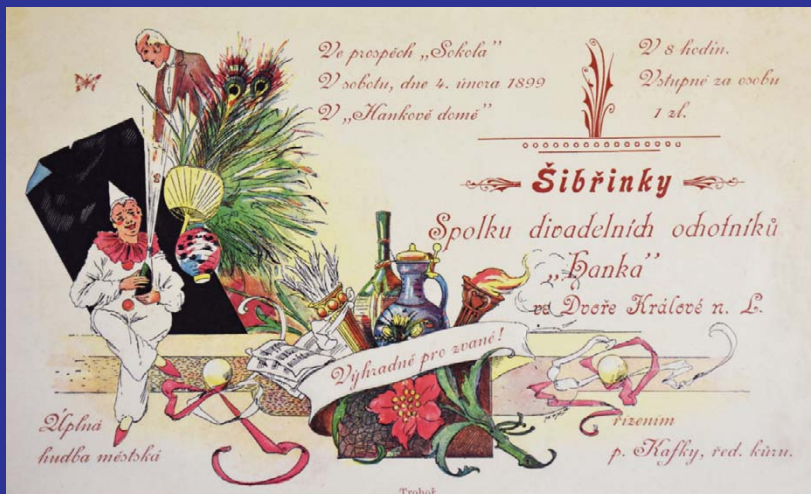 Ve prospěch „Sokola"
V sobotu, dne 4. února 1899
V „Hankově domě"
V 8 hodin.
Vstupné za osobu
1 zl.
Šibřinky
Spolku divadelních ochotníků
„Hanka"
ve Dvoře Králové n. L.
Výhradně pro zvané!
Úplná
hudba městská
řízením
p. Kafky, řed. kůru.